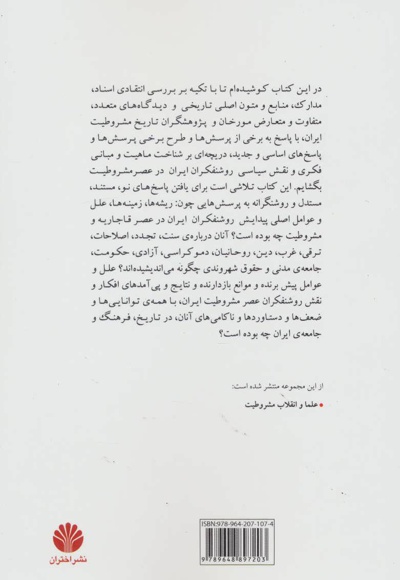 در این کتاب کوشیده‌ام تا با تکیه بر بررسی انتقادی اسناد،
مدارک، منابع و متون اصلی تاریخی و دیدگاه‌های متعدد،
متفاوت و متعارض مورخان و پژوهشگران تاریخ مشروطیت
ایران، با پاسخ به برخی از پرسش‌ها و طرح برخی پرسش‌ها و
پاسخ‌های اساسی و جدید، دریچه‌ای بر شناخت ماهیت و مبانی
فکری و نقش سیاسی روشنفکران ایران در عصر مشروطیت
بگشایم. این کتاب تلاشی است برای یافتن پاسخ‌های نو، مستند،
مستدل و روشنگرانه به پرسش‌هایی چون: ریشه‌ها، زمینه‌ها، علل
و عوامل اصلی پیدایش روشنفکران ایران در عصر قاجاریه و
مشروطیت چه بوده است؟ آنان درباره‌ی سنت، تجدد، اصلاحات،
ترقی، غرب، دین، روحانیان، دموکراسی، آزادی، حکومت،
جامعه‌ی مدنی و حقوق شهروندی چگونه می‌اندیشیده‌اند؟ علل و
عوامل پیش برنده و موانع بازدارنده و نتایج و پی‌آمدهای افکار و
نقش روشنفکران عصر مشروطیت ایران، با همه‌ی توانایی‌ها و
ضعف‌ها و دستاوردها و ناکامی‌های آنان، در تاریخ، فرهنگ و
جامعه‌ی ایران چه بوده است؟
از این مجموعه منتشر شده است:
• علما و انقلاب مشروطیت
ISBN:978-964-207-107-4
9 789648 897203
نشر اختران